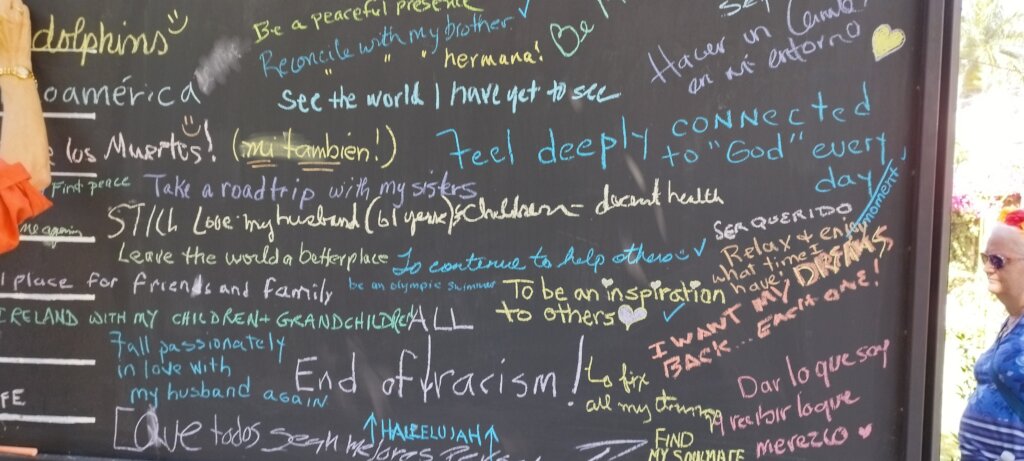 dolphins
Be a peaceful presence
Reconcile with my brother ✓
" " " hermana!
Be
Hacer un
en mi entorno
oamérica
See the world I have yet to see
Feel deeply connected
to "God" every
day
e los Muertos! (mi tambien!)
Find peace
Take a roadtrip with my sisters
Still Love my husband (61 years) & children - decent health
me again
Leave the world a better place
To continue to help others ✓
SER QUERIDO
Relax & enjoy
what time I
have!!
moment
l place for friends and family
be an olympic swimmer
To be an inspiration
to others
I WANT MY DREAMS
BACK... EACH ONE!
IRELAND WITH MY CHILDREN + GRANDCHILDREN
ALL
Fall passionately
in love with
my husband again
End of racism!
to fix
all my
Dar lo que soy
y recibir lo que
merezco
FE
Love todos sean
↑HALLELUJAH↑
FIND
MY SOULMATE